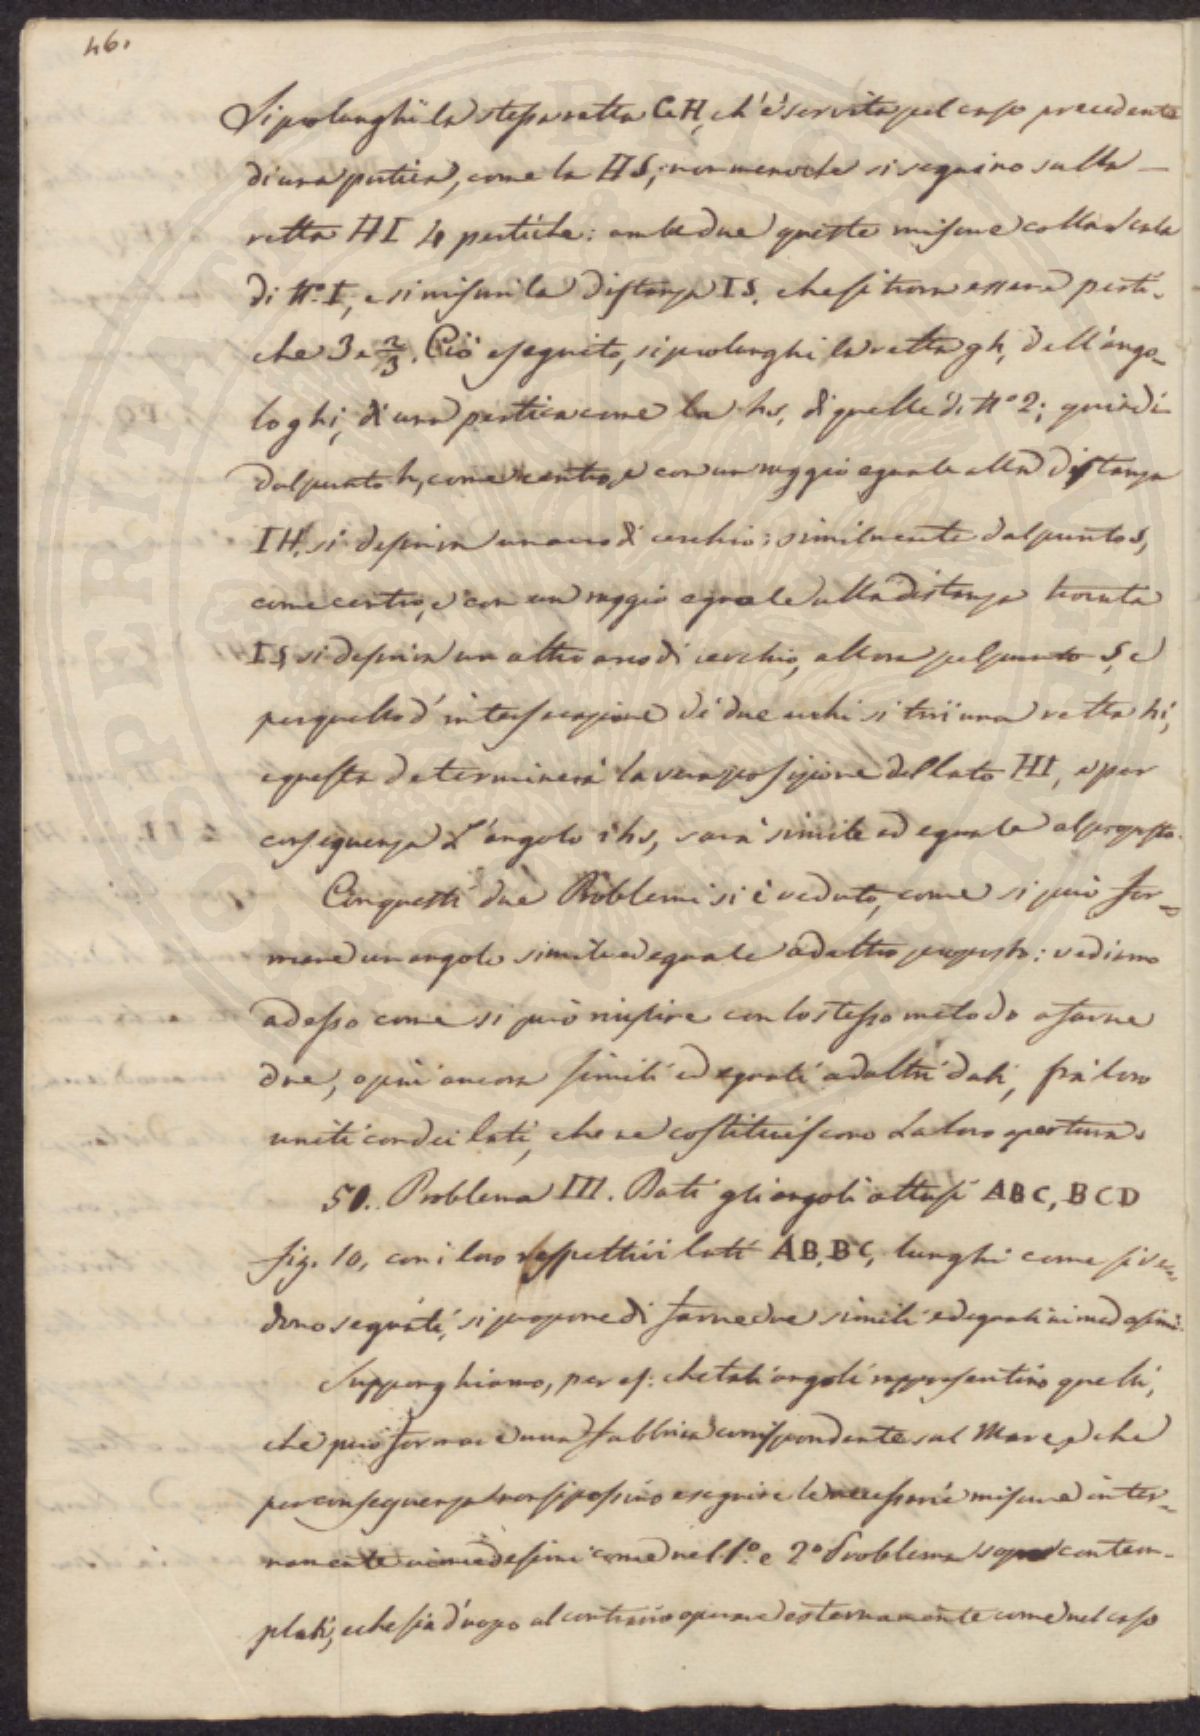 46.
Si prolunghi la stessa retta GH, ch'è servita pel caso precedente
di una pertica, come la HS; nonmenoche si seguino sulla
retta HI 4 pertiche: ambedue queste misure colla scala
di N.° I, e si misuri la distanza IS, che si trova essere perti-
che 3 e 2/3. Ciò eseguito, si prolunghi la retta gh, dell'ango-
lo ghi, di una pertica come la hs, di quelle di N.° 2; quindi
dal punto h, come centro, e con un raggio eguale alla distanza
IH, si descriva un arco di cerchio; similmente dal punto s,
come centro, e con un raggio eguale alla distanza trovata
IS, si descriva un altro arco di cerchio, allora pel punto S, e
per quello d'intersecazione di due archi si tiri una retta hi,
e questa determinerà la vera posizione del lato HI, e per
conseguenza L'angolo ihs, sarà simile ed eguale al proposto.
Con questi due Problemi si è veduto, come si può for-
mare un angolo simile ed eguale ad altro proposto: vediamo
adesso come si può riuscire con lo stesso metodo a farne
due, o più ancora simili ed eguali ad altri dati, fra loro
uniti con dei lati, che ne costituiscono la loro apertura.
50. Problema III. Dati gli angoli ottusi ABC, BCD
fig. 10, con i loro rispettivi lati AB, BC, lunghi come si ve-
dono segnati, si propone di farne due simili ed eguali ai medesimi.
Supponghiamo, per es: che tali angoli rappresentino quelli,
che può formare una fabbrica corrispondente sul Mare, e che
per conseguenza non si possino eseguire le necessarie misure inter-
namente ai medesimi come nel 1° e 2° Problema sopra contem-
plati, e che sia d'uopo al contrario operare esternamente come nel caso